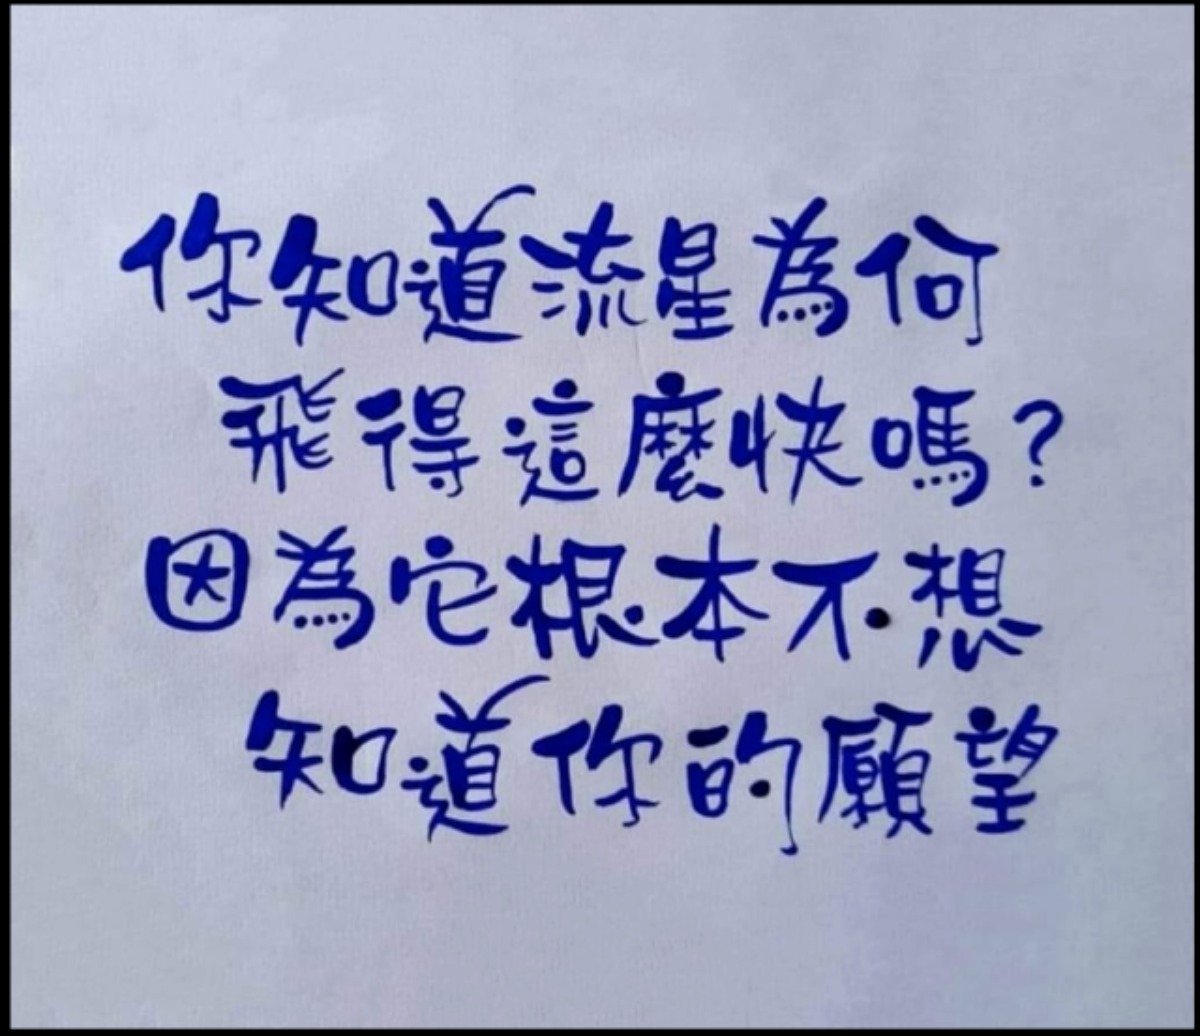 你知道流星為何
飛得這麼快嗎?
因為它根本不想
知道你的願望